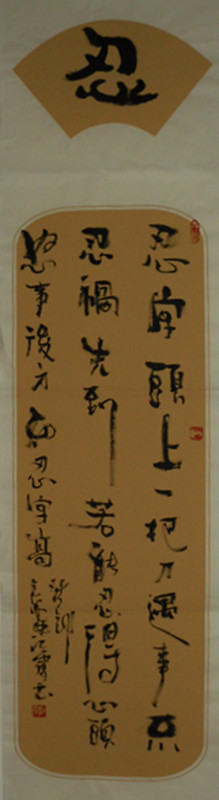 忍
忍字頭上一把刀遇事不
忍禍先到若能忍得心頭
怒事後方知忍字高